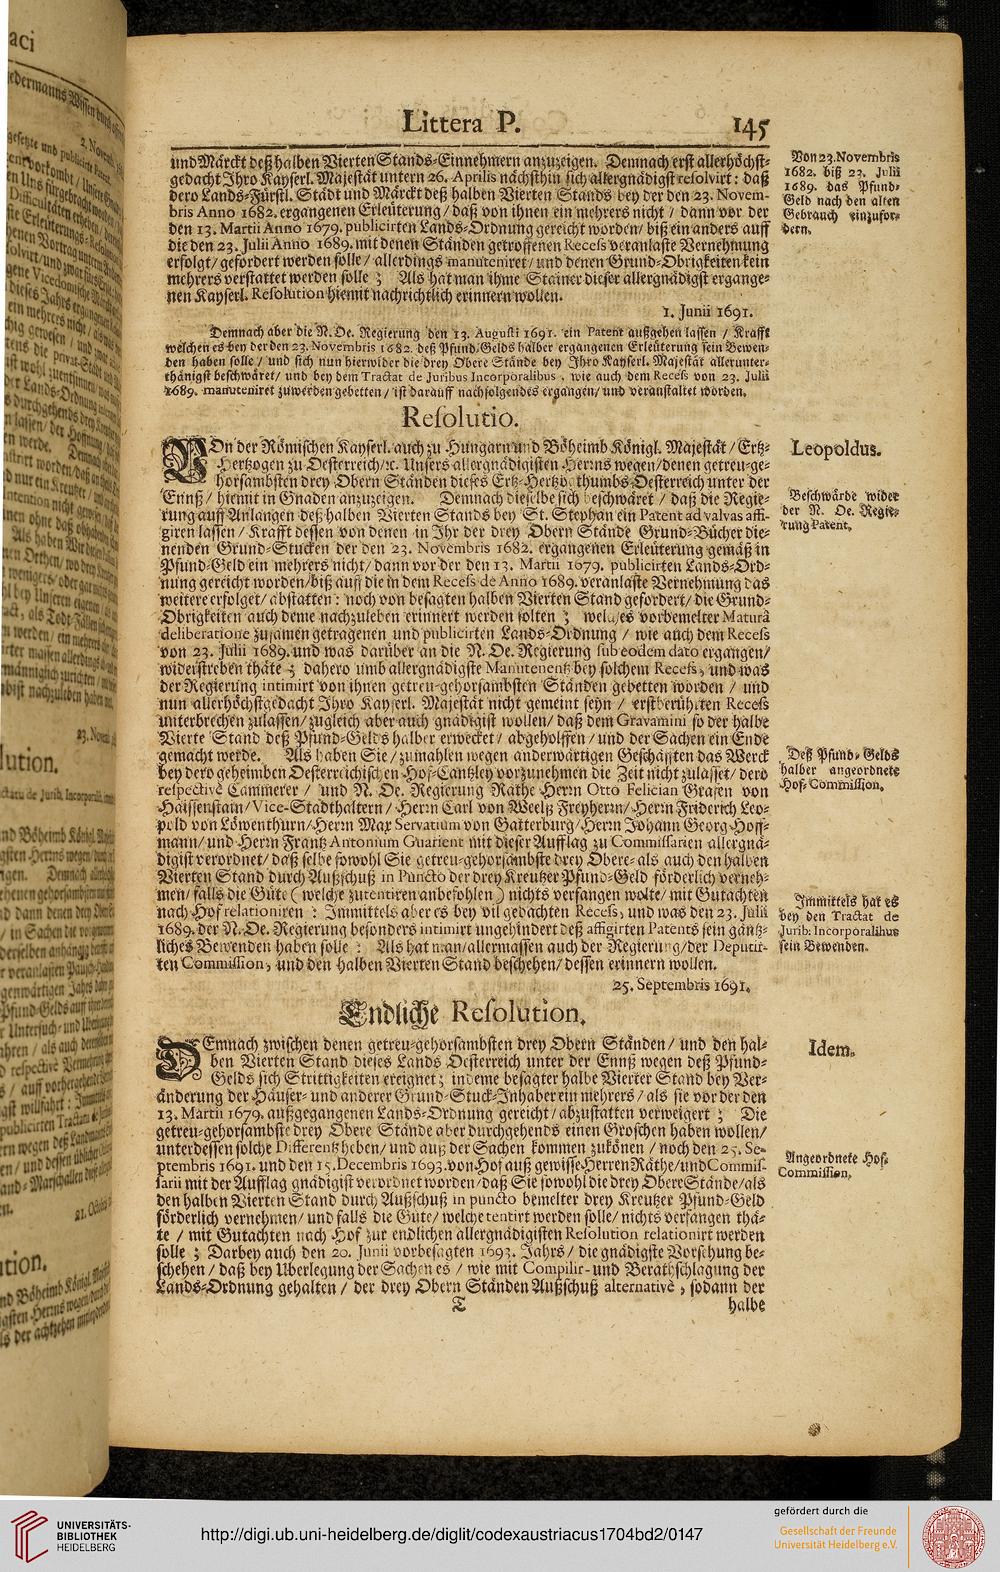 Littera P. 145
und Märckt deß halben Vierten Stands-Einnehmern anzuzeigen. Demnach erst allerhöchst-
gedacht Ihro Kayserl. Majestät untern 26. Aprilis nächsthin sich allergnädigst resolvirt: daß
dero Lands-Fürstl. Städt und Märckt deß halben Vierten Stands bey der den 23. Novem-
bris Anno 1682. ergangenen Erleüterung / daß von ihnen ein mehrers nicht / dann vor der
den 13. Martii Anno 1679. publicirten Lands-Ordnung gereicht worden / biß ein anders auff
die den 23. Julii Anno 1689. mit denen Ständen getroffenen Recess veranlaste Vernehmung
erfolgt / gefordert werden solle / allerdings manuteniret / und denen Grund-Obrigkeiten kein
mehrers verstattet werden solle ; Als hat man ihme Stainer dieser allergnädigst ergange-
nen Kayserl. Resolution hiemit nachrichtlich erinnern wollen.
1. Junii 1691.
Demnach aber die N. Oe. Regierung den 13. Augusti 1691. ein Patent außgehen lassen / Krafft
welchen es bey der den 23. Novembris 1682. deß Pfund-Gelds halber ergangenen Erleüterung sein Bewen-
den haben solle / und sich nun hierwider die drey Obere Stände bey Ihro Kayserl. Majestät allerunter-
thänigst beschwäret / und bey dem Tractat de Juribus Incorporalibus , wie auch dem Recess von 23. Julii
1689. manuteniret zuwerden gebetten / ist darauff nachfolgendes ergangen / und veranstaltet worden.
Resolutio.
VOn der Römischen Kayserl. auch zu Hungarn und Böheimb Königl. Majestät / Ertz-
Hertzogen zu Oesterreich / rc. Unsers allergnädigisten Herrns wegen / denen getreu-ge-
horsambsten drey Obern Ständen dieses Ertz-Hertzogthumbs Oesterreich unter der
Ennß / hiemit in Gnaden anzuzeigen. Demnach dieselbe sich beschwäret / daß die Regie-
rung auff Anlangen deß halben Vierten Stands bey St. Stephan ein Patent ad valvas affi-
giren lassen / Krafft dessen von denen in Ihr der drey Obern Stände Grund-Bücher die-
nenden Grund-Stucken der den 23. Novembris 1682. ergangenen Erleüterung gemäß in
Pfund-Geld ein mehrers nicht / dann vor der den 13. Martii 1679. publicirten Lands-Ord-
nung gereicht worden / biß auff die in dem Recess de Anno 1689. veranlaste Vernehmung das
weitere erfolget / abstatten : noch von besagten halben Vierten Stand gefordert / die Grund-
Obrigkeiten auch deme nachzuleben erinnert werden solten ; welches vorbemelter Maturâ
deliberatione zusamen getragenen und publicirten Lands-Ordnung / wie auch dem Recess
von 23. Julii 1689. und was darüber an die N. Oe. Regierung sub eodem dato ergangen /
widerstreben thäte ; dahero umb allergnädigste Manutenentz bey solchem Recess, und was
der Regierung intimirt von ihnen getreu-gehorsambsten Ständen gebetten worden / und
nun allerhöchstgedacht Ihro Kayserl. Majestät nicht gemeint seyn / erstberührten Recess
unterbrechen zulassen / zugleich aber auch gnädigist wollen / daß dem Gravamini so der halbe
Vierte Stand deß Pfund-Gelds halber erwecket / abgeholffen / und der Sachen ein Ende
gemacht werde. Als haben Sie / zumahlen wegen anderwärtigen Geschäfften das Werck
bey dero geheimben Oesterreichischen Hof-Cantzley vorzunehmen die Zeit nicht zulasset / dero
respectivè Cammerer / und N. Oe. Regierung Räthe Herrn Otto Felician Grafen von
Haissenstain / Vice-Stadthaltern / Herrn Carl von Weeltz Freyherrn / Herrn Friderich Leo-
pold von Löwenthurn / Herrn Max Servatium von Gatterburg / Herrn Johann Georg Hoff-
mann / und Herrn Frantz Antonium Guarient mit dieser Aufflag zu Commissarien allergnä-
digist verordnet / daß selbe sowohl Sie getreu-gehorsambste drey Obere- als auch den halben
Vierten Stand durch Außschuß in Puncto der drey Kreutzer Pfund-Geld förderlich verneh-
men / falls die Güte ( welche zutentiren anbefohlen ) nichts verfangen wolte / mit Gutachten
nach Hof relationiren : Immittels aber es bey vil gedachten Recess, und was den 23. Julii
1689. der N. Oe. Regierung besonders intimirt ungehindert deß affigirten Patents sein gäntz-
liches Bewenden haben solle : Als hat man / allermassen auch der Regierung / der Deputir-
ten Commission, und den halben Vierten Stand beschehen / dessen erinnern wollen.
25. Septembris 1691.
Endliche Resolution.
DEmnach zwischen denen getreu-gehorsambsten drey Obern Ständen / und den hal-
ben Vierten Stand dieses Lands Oesterreich unter der Ennß wegen deß Pfund-
Gelds sich Strittigkeiten ereignet ; indeme besagter halbe Vierter Stand bey Ver-
änderung der Häuser- und anderer Grund-Stuck-Inhaber ein mehrers / als sie vor der den
13. Martii 1679. außgegangenen Lands-Ordnung gereicht / abzustatten verweigert ; Die
getreu-gehorsambste drey Obere Stände aber durchgehends einen Groschen haben wollen /
unterdessen solche Differentz heben / und auß der Sachen kommen zukönen / noch den 25. Se-
ptembris 1691. und den 15. Decembris 1693. von Hof auß gewisse Herren Räthe / und Commis-
sarii mit der Aufflag gnädigist verordnet worden / daß Sie sowohl die drey Obere Stände / als
den halben Vierten Stand durch Außschuß in puncto bemelter drey Kreutzer Pfund-Geld
förderlich vernehmen / und falls die Güte / welche tentirt werden solle / nichts verfangen thä-
te / mit Gutachten nach Hof zur endlichen allergnädigisten Resolution relationirt werden
solle ; Darbey auch den 20. Junii vorbesagten 1693. Jahrs / die gnädigste Vorsehung be-
schehen / daß bey Uberlegung der Sachen es / wie mit Compilir- und Berathschlagung der
Lands-Ordnung gehalten / der drey Obern Ständen Außschuß alternativè , sodann der
T halbe
Von 23. Novembris
1682. biß 23. Julii
1689. das Pfund-
Geld nach den alten
Gebrauch einzufor-
dern.
Leopoldus.
Beschwärde wider
der N. Oe. Regie-
rung Patent.
Deß Pfund-Gelds
halber angeordnete
Hof-Commission.
Immittels hat es
bey den Tractat de
Jurib: Incorporalibus
sein Bewenden.
Idem.
Angeordnete Hof-
Commission.
UNIVERSITÄTS-
BIBLIOTHEK
HEIDELBERG
http://digi.ub.uni-heidelberg.de/diglit/codexaustriacus1704bd2/0147
gefördert durch die
Gesellschaft der Freunde
Universität Heidelberg e.V.